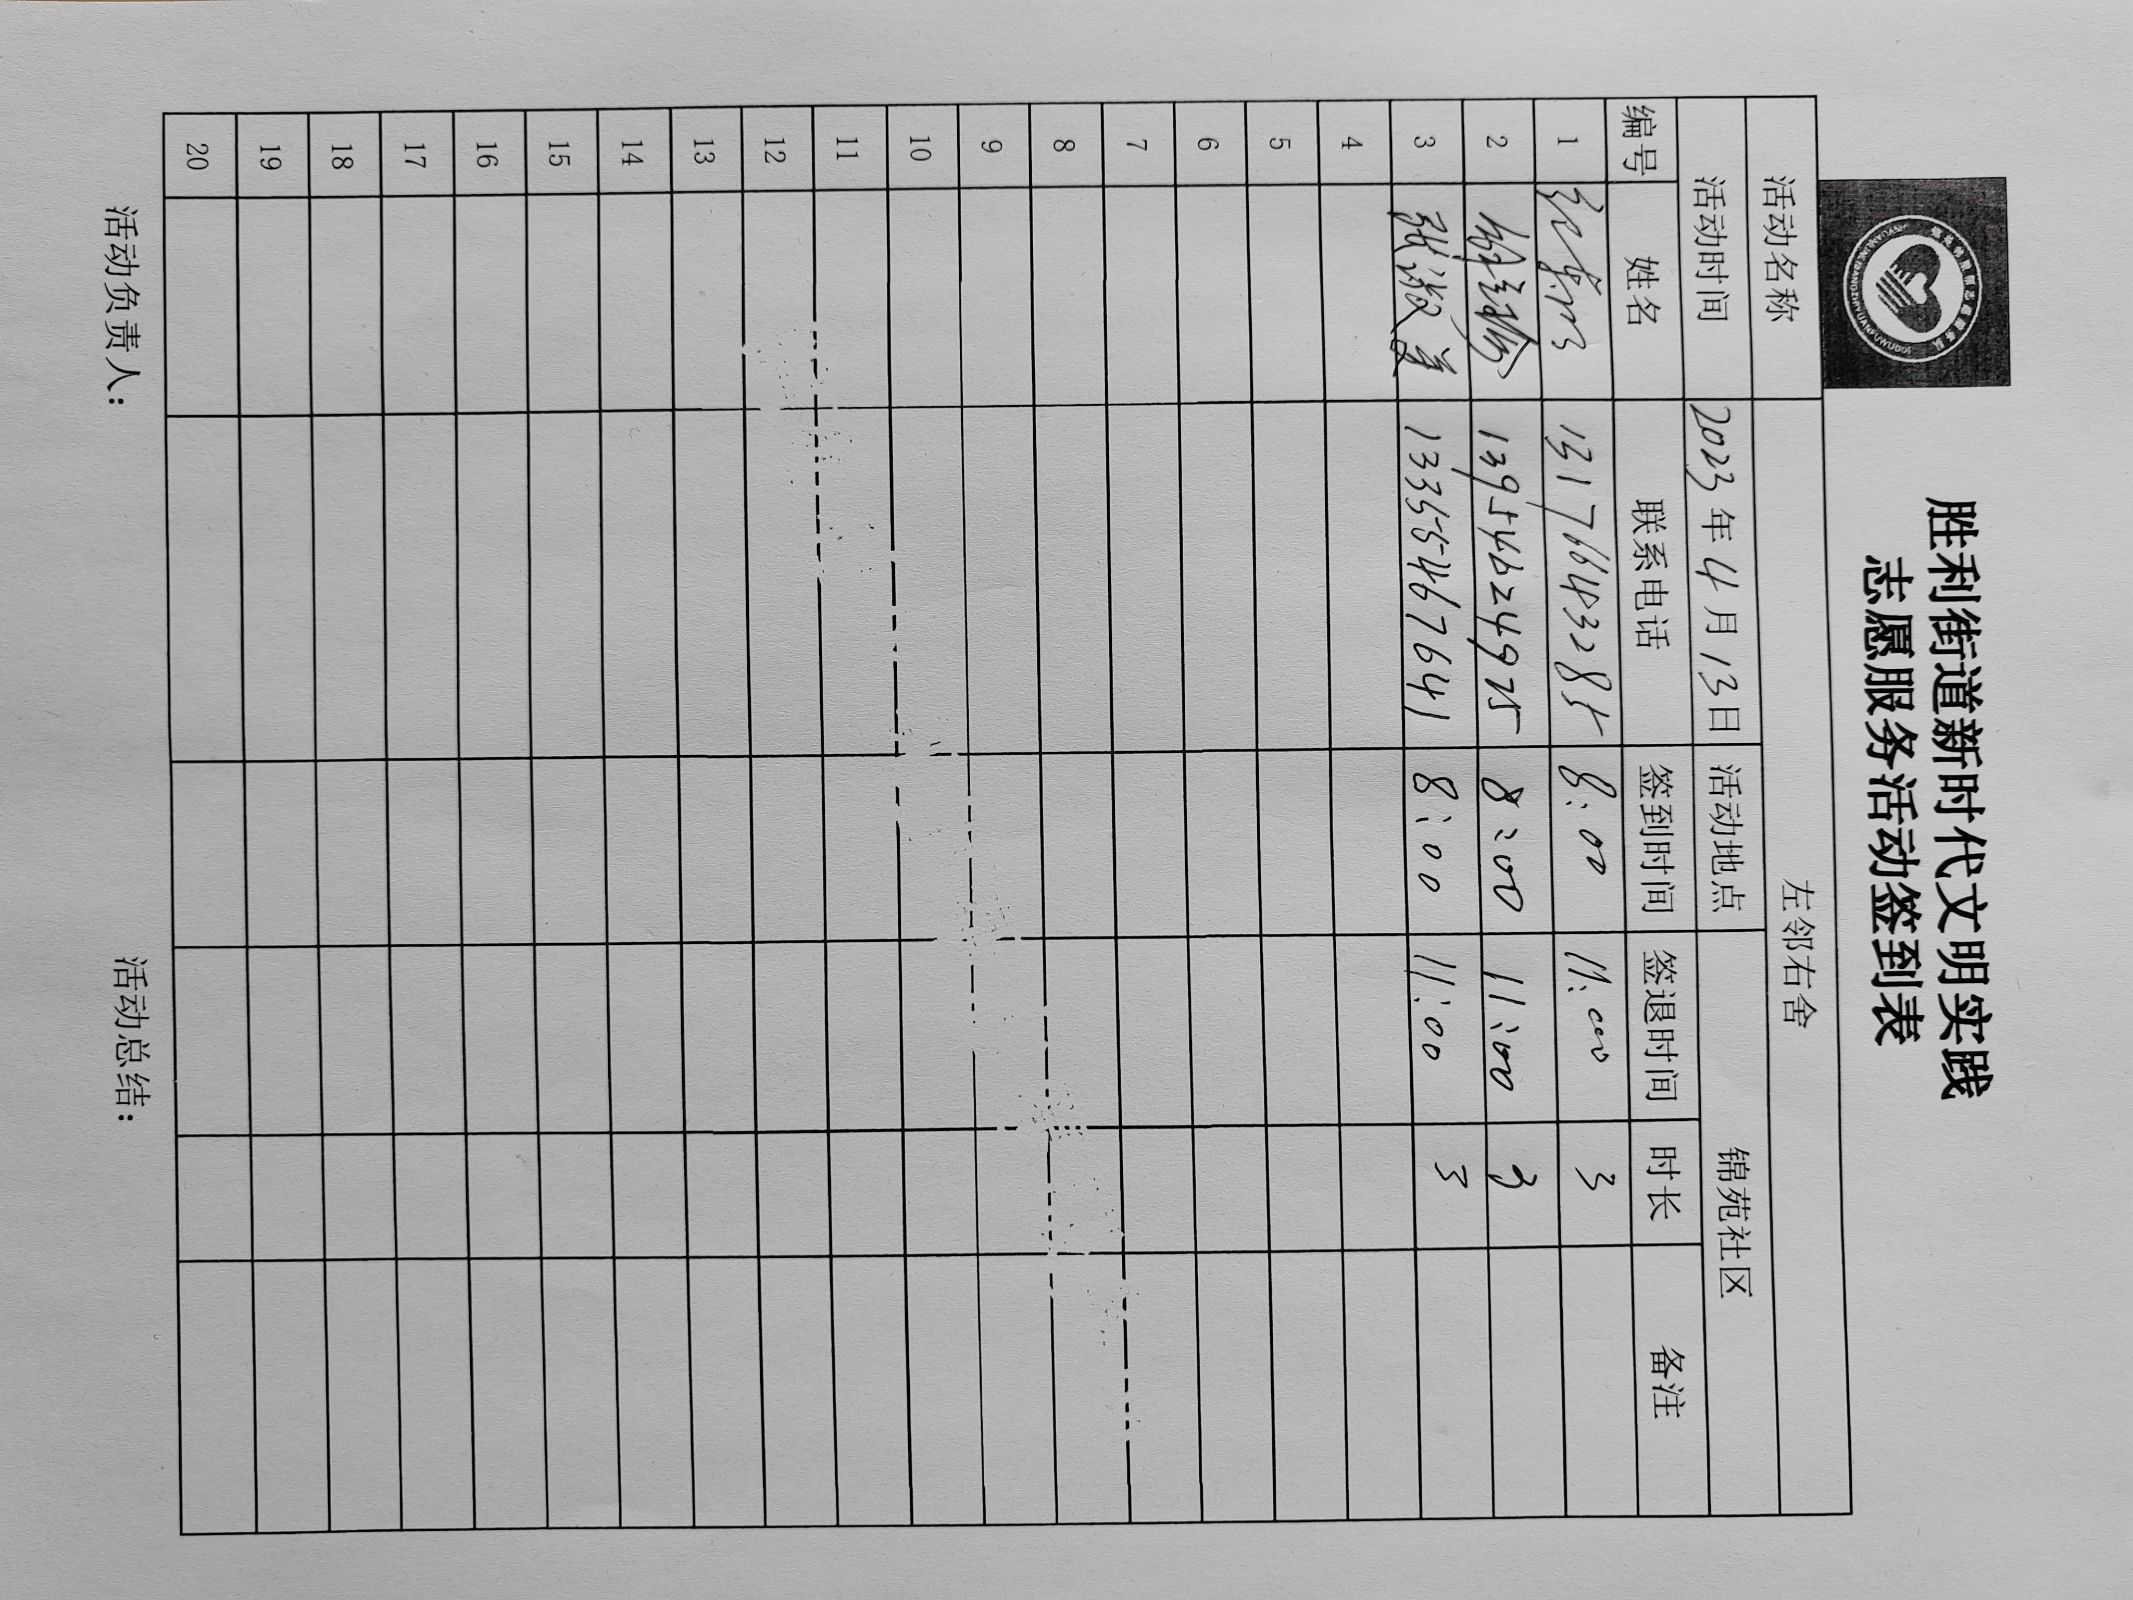 胜利街道新时代文明实践
志愿服务活动签到表
活动名称 左邻右舍
活动时间 2023年4月13日 活动地点 锦苑社区
编号 姓名 联系电话 签到时间 签退时间 时长 备注
1 13176643285 8:00 11:00 3
2 13954624975 8:00 11:00 3
3 张淑美 13355467641 8:00 11:00 3
4
5
6
7
8
9
10
11
12
13
14
15
16
17
18
19
20
活动负责人： 活动总结：